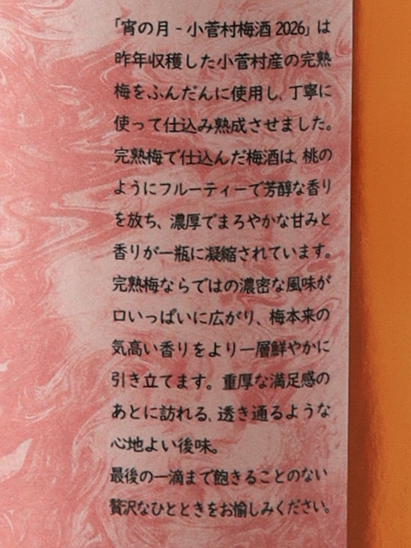 「宵の月 - 小菅村梅酒 2026」は
昨年収穫した小菅村産の完熟
梅をふんだんに使用し、丁寧に
使って仕込み熟成させました。
完熟梅で仕込んだ梅酒は、桃の
ようにフルーティーで芳醇な香り
を放ち、濃厚でまろやかな甘みと
香りが一瓶に凝縮されています。
完熟梅ならではの濃密な風味が
口いっぱいに広がり、梅本来の
気高い香りをより一層鮮やかに
引き立てます。重厚な満足感の
あとに訪れる、透き通るような
心地よい後味。
最後の一滴まで飽きることのない
贅沢なひとときをお愉しみください。